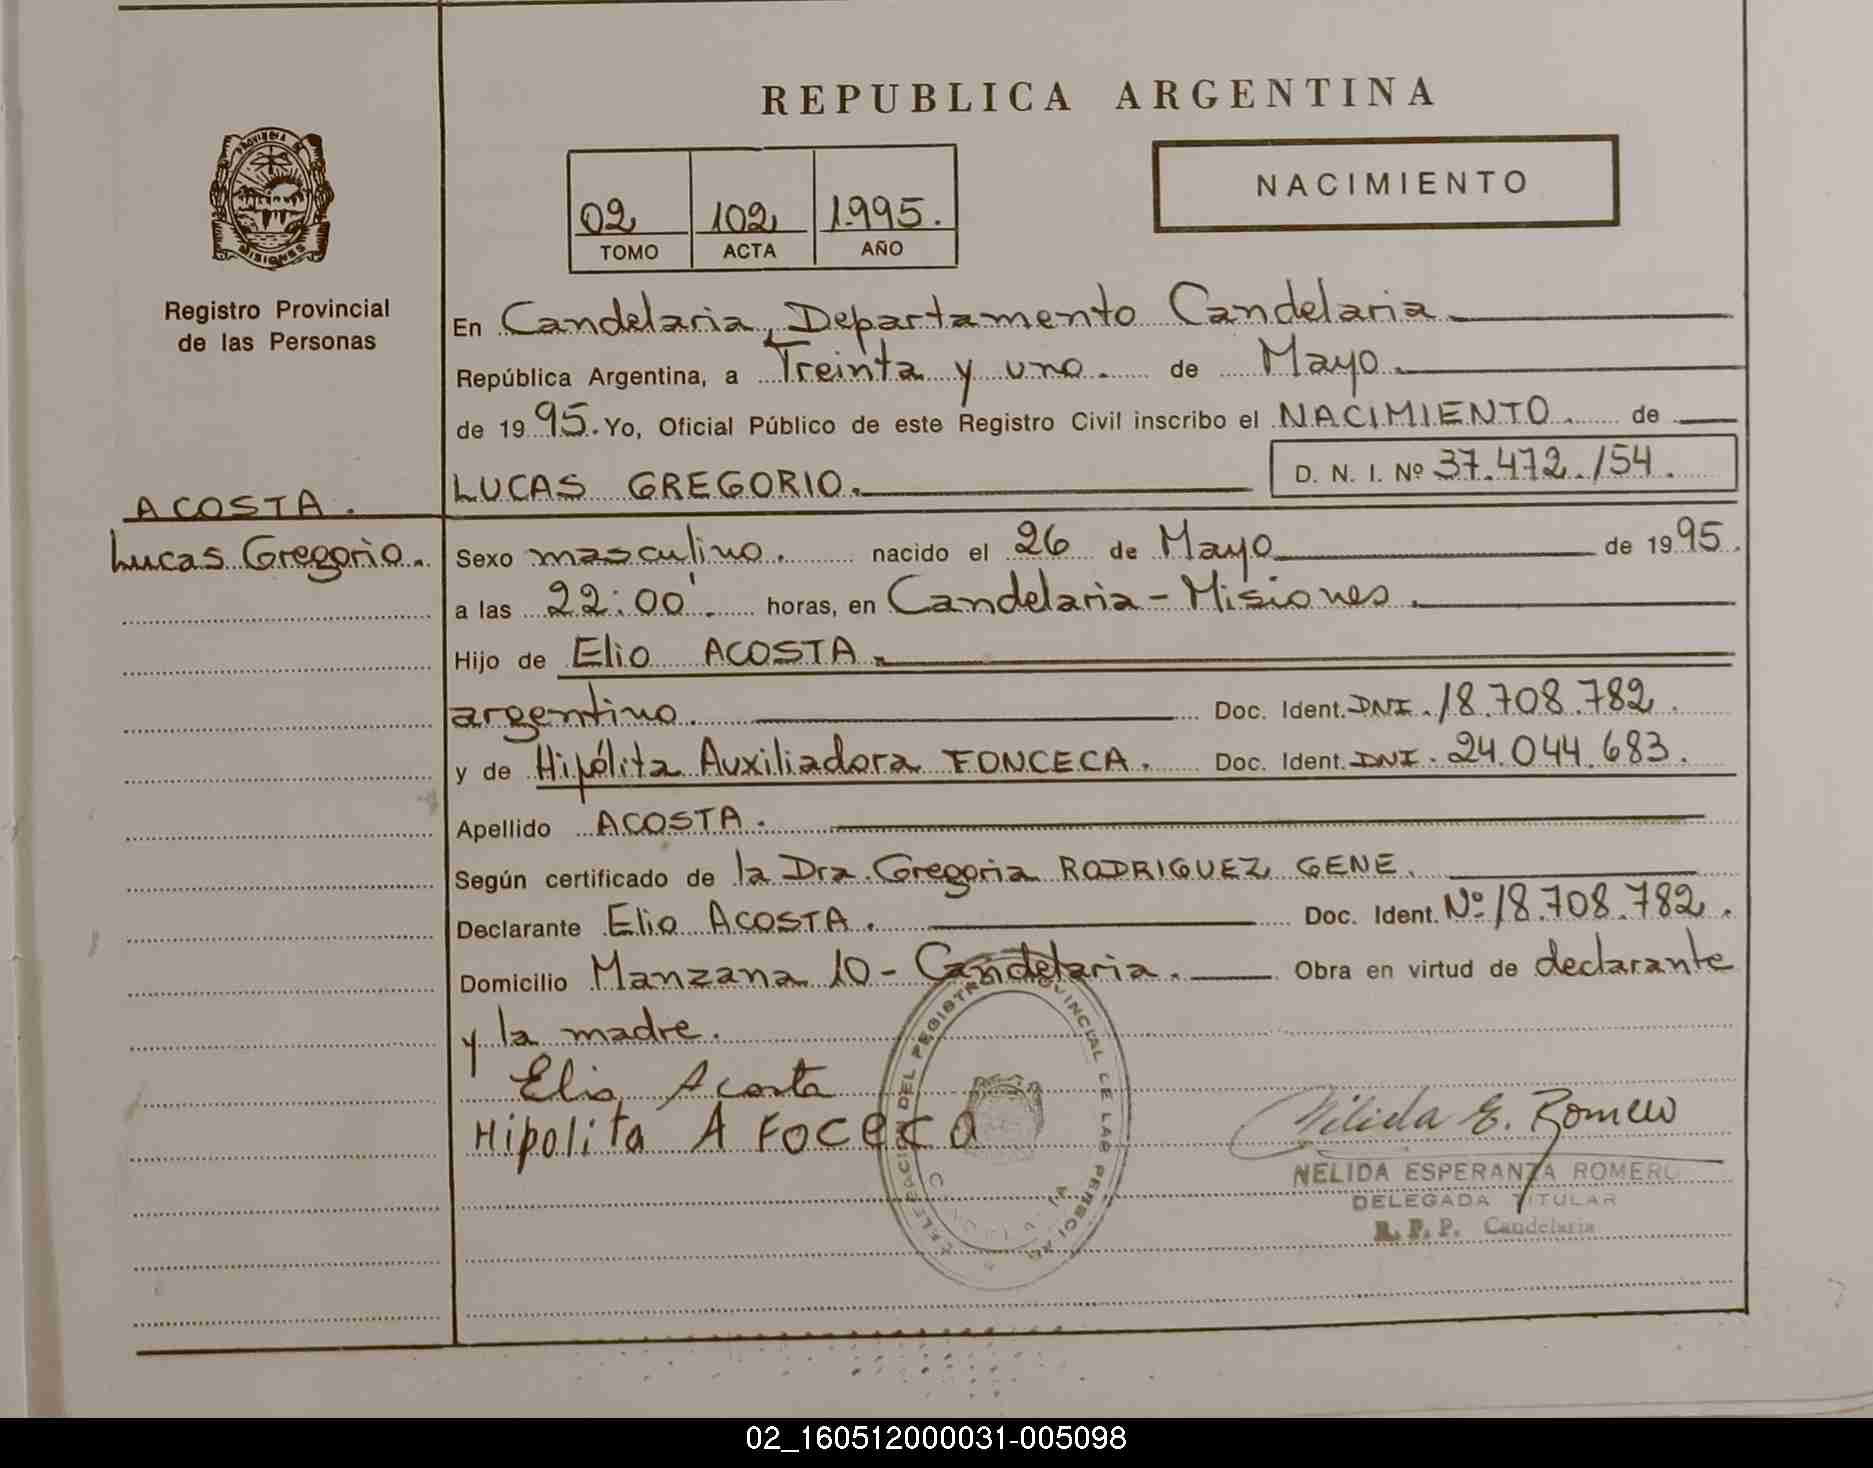 REPUBLICA ARGENTINA
PROVINCIA DE
MISIONES
Registro Provincial
de las Personas
02 102 1995.
TOMO ACTA AÑO
NACIMIENTO
En Candelaria, Departamento Candelaria
República Argentina, a Treinta y uno. de Mayo.
de 1995. Yo, Oficial Público de este Registro Civil inscribo el NACIMIENTO. de
LUCAS GREGORIO. D. N. I. Nº 37.472.154.
ACOSTA.
Lucas Gregorio.
Sexo masculino. nacido el 26 de Mayo de 1995.
a las 22:00'. horas, en Candelaria - Misiones.
Hijo de Elio ACOSTA.
argentino. Doc. Ident. DNI. 18.708.782.
y de Hipólita Auxiliadora FONCECA. Doc. Ident. DNI. 24.044.683.
Apellido ACOSTA.
Según certificado de la Dra. Gregoria RODRIGUEZ GENE.
Declarante Elio ACOSTA. Doc. Ident. Nº 18.708.782.
Domicilio Manzana 10 - Candelaria. Obra en virtud de declarante
y la madre.
Elio Acosta
Hipolita A Foceca
DEL REGISTRO PROVINCIAL DE LAS PERSONAS
Nélida E. Romero
NELIDA ESPERANZA ROMERO
DELEGADA TITULAR
R. P. P. Candelaria
02_160512000031-005098